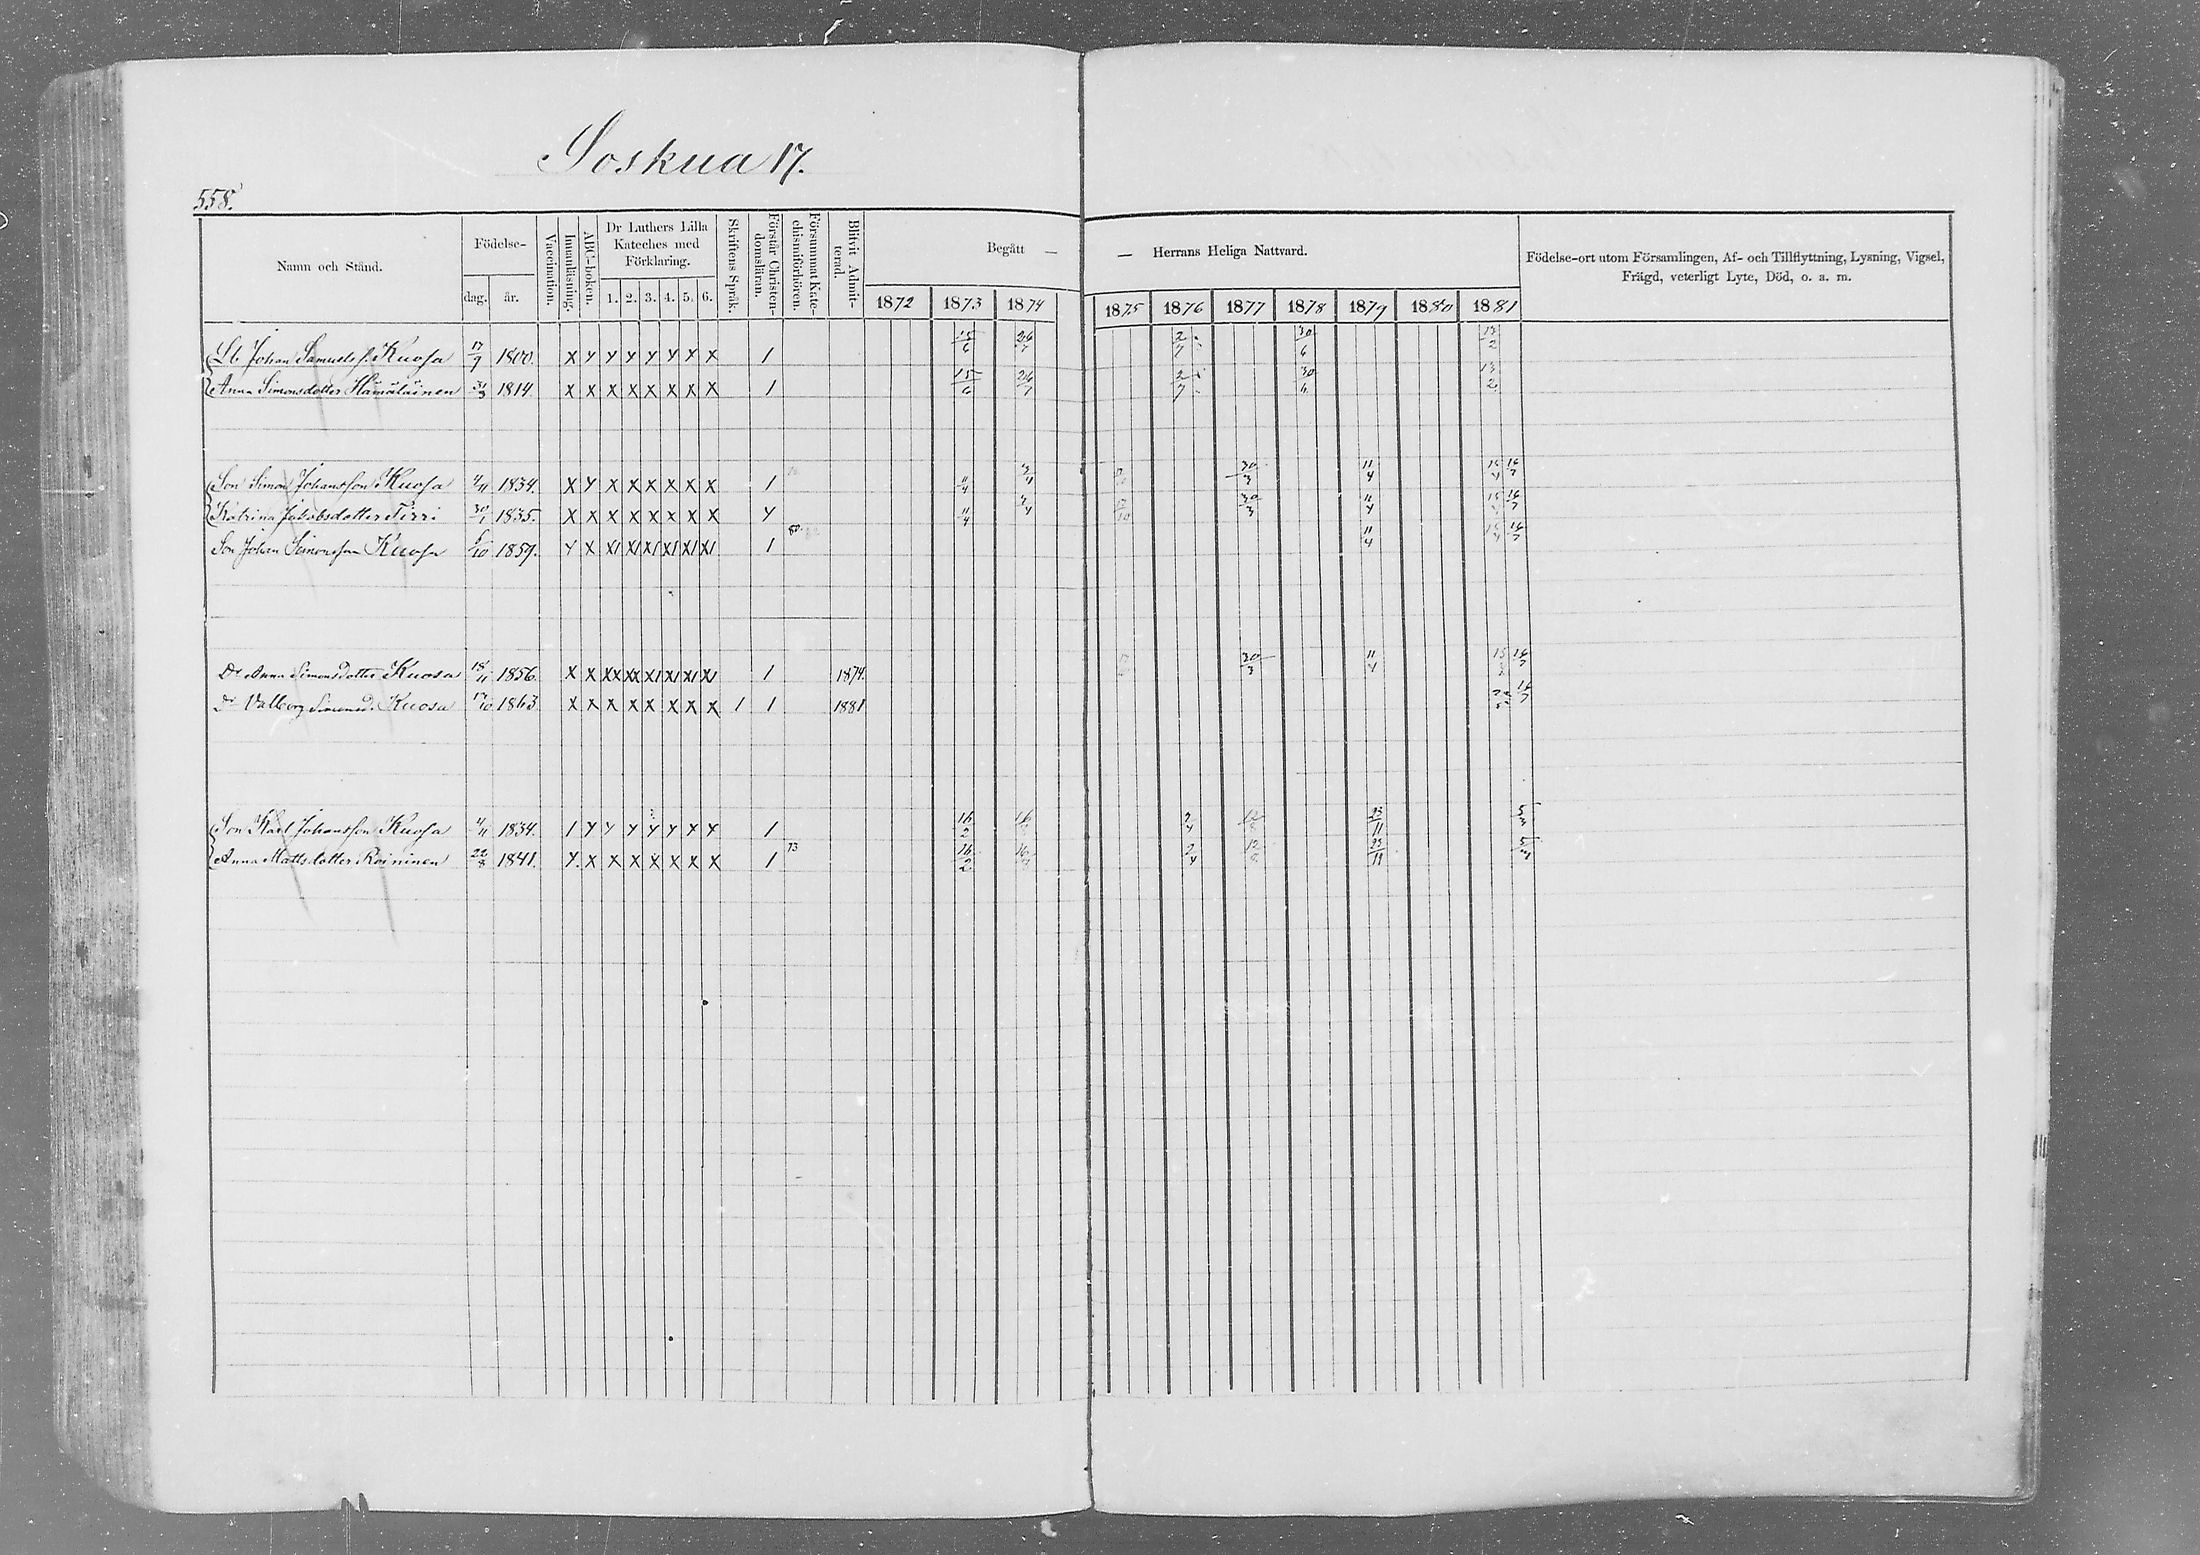 Soskua 17.
558.
Namn och Stånd.
Födelse-
dag. år.
Vaccination.
Innanläsning.
ABC-boken.
Dr Luthers Lilla Kateches med Förklaring.
1. 2. 3. 4. 5. 6.
Skriftens Språk.
Förstår Christendomsläran.
Försummat Katechismiförhören.
Blifvit Admitterad.
Begått — — Herrans Heliga Nattvard.
1872 1873 1874 1875 1876 1877 1878 1879 1880 1881
Födelse-ort utom Församlingen, Af- och Tillflyttning, Lysning, Vigsel,
Frägd, veterligt Lyte, Död, o. a. m.
Johan Samuelss. Kuosa 17/7 1800. X Y Y Y Y Y X X 1 15/6 2/7 30/6 13/2
Anna Simonsdotter Hämäläinen 1814. X X X X X X X X 1 15/6 26/7 2/7 30/6 13/2
Son Simon Johansson Kuosa 4/11 1834. X Y X X X X X X 1 11/4 30/3 11/4 15/4 16/7
Katrina Jakobsdotter Tirri 30/1 1835. X X X X X X X X Y 11/4 30/3 11/4 15/4 16/7
Son Johan Simonsson Kuosa 1859. Y X X1 X1 X1 X1 X1 X1 1 80. 11/4 15/4 16/7
Dr Anna Simonsdotter Kuosa 18/11 1856. X X XX XX X1 X1 X1 X1 1 1874. 30/3 11/4 16/7
Dr Valborg Simonsd. Kuosa 17/10 1863 X X X X X X X X 1 1 1881 16/7
Son Karl Johansson Kuosa 4/11 1834. 1 Y Y Y Y Y Y Y 1 16/2 2/4 23/11 5/3
Anna Mattsdotter Roininen 22/8 1841. Y. X X X X X X X 1 73 16/2 2/4 23/11 5/3